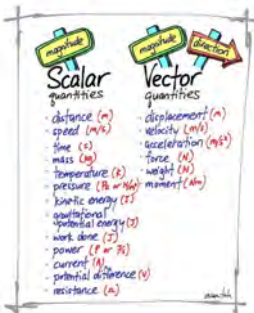 magnitude
magnitude
direction
Scalar
quantities
- distance (m)
- speed (m/s)
- time (s)
- mass (kg)
- temperature (K)
- pressure (Pa or N/m²)
- kinetic energy (J)
- gravitational
potential energy (J)
- work done (J)
- power (
- current (A)
- potential difference (V)
- resistance (Ω)
Vector
quantities
- displacement (m)
- velocity (m/s)
- acceleration (m/s²)
- force (N)
- weight (N)
- moment (Nm)